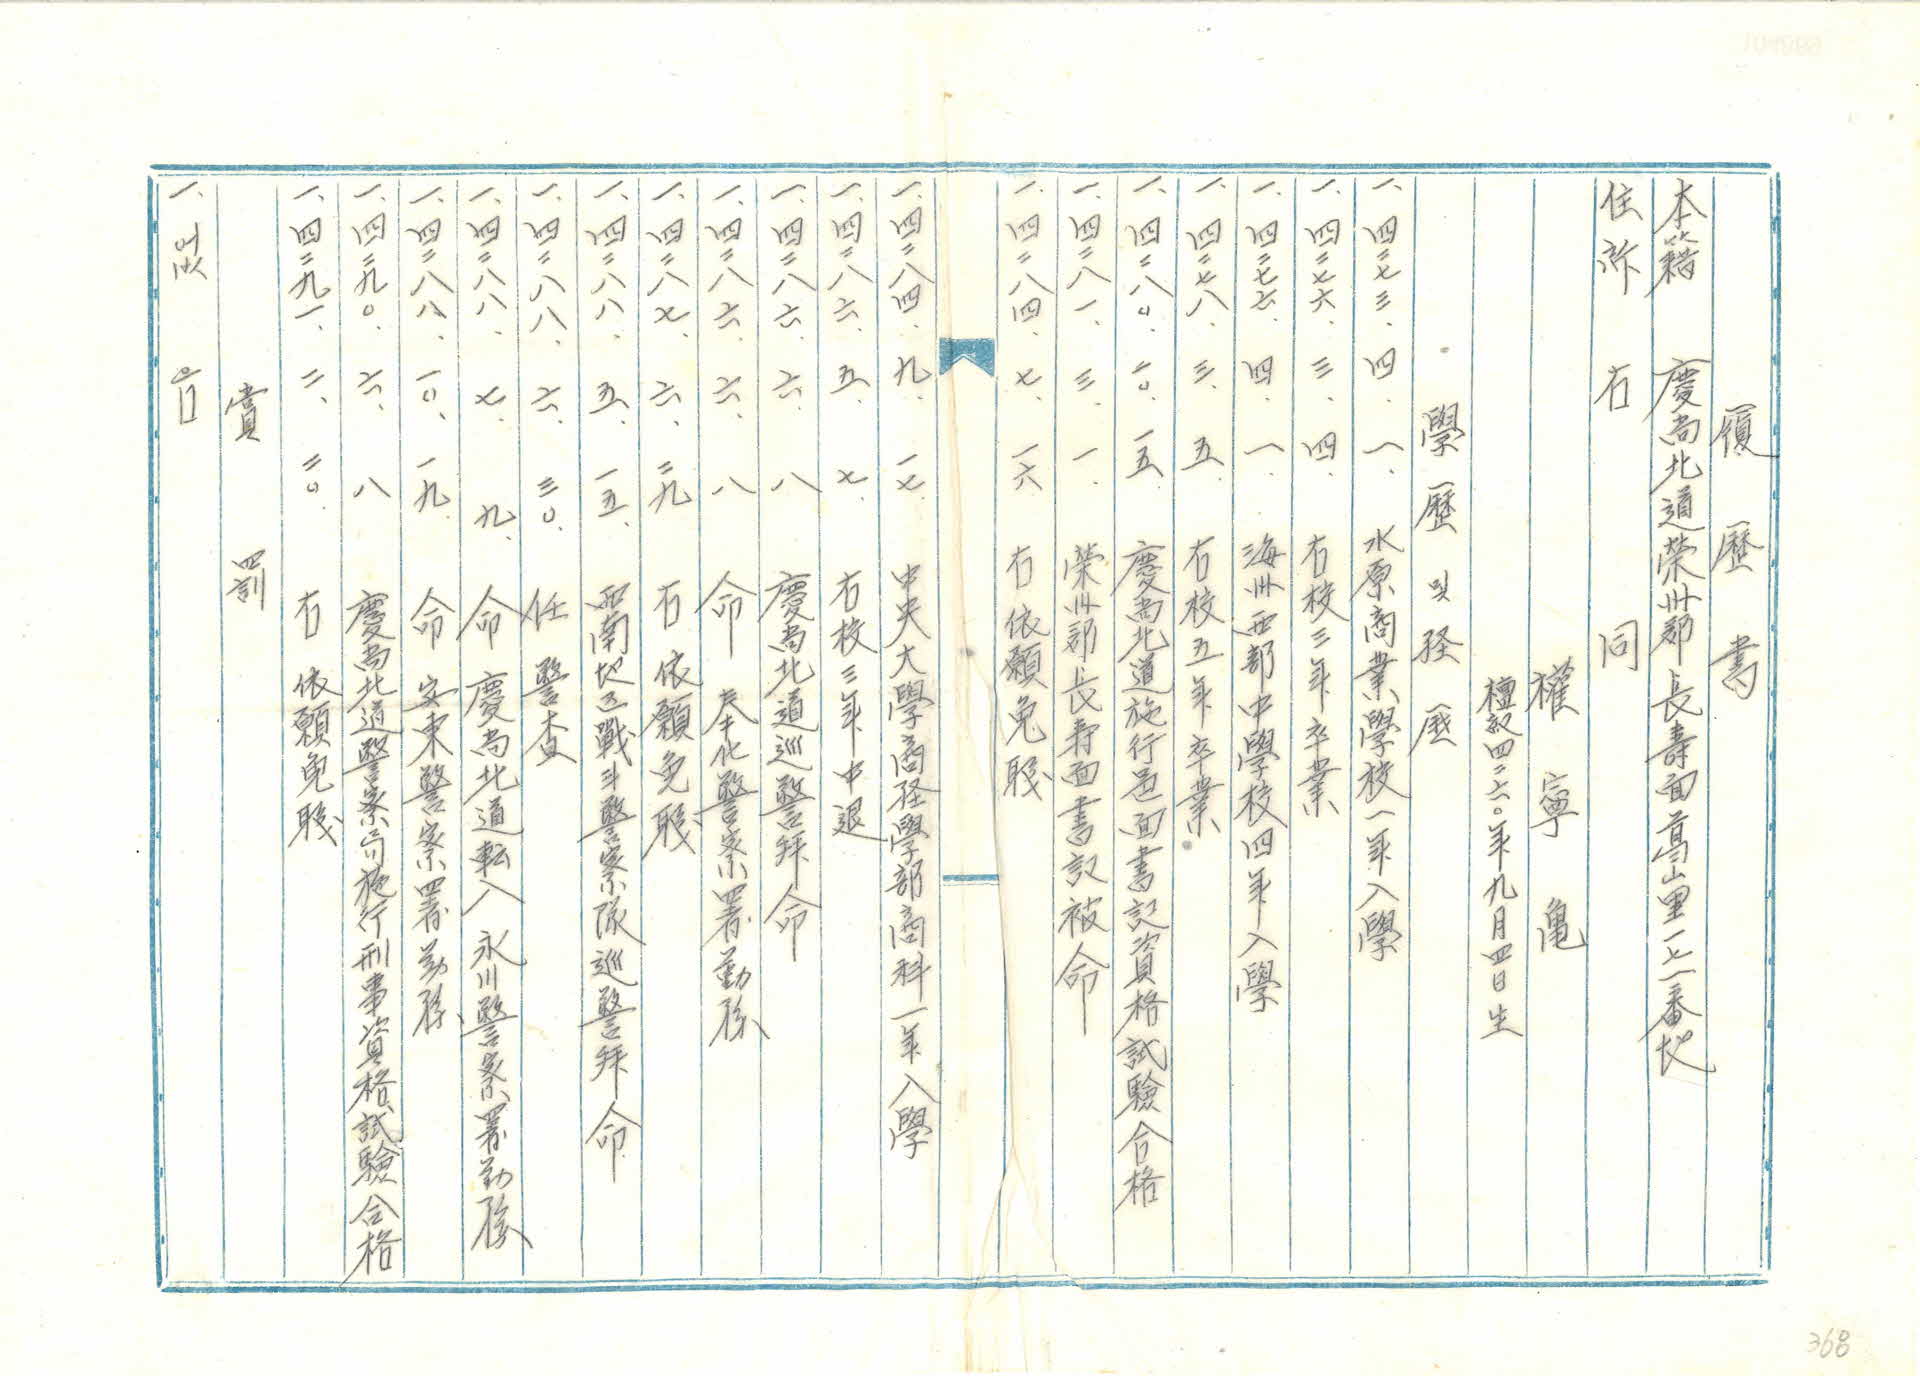 履歷書
本籍 慶尚北道榮州郡長壽面葛山里一七一番地
住所 右同
權寧亀
檀紀四二六〇年九月四日生
學歷 및 経歴
一. 四二七三. 四. 一. 水原商業學校一年入學
一. 四二七六. 三. 四 右校三年卒業
一. 四二七六. 四. 一 海州西部中學校四年入學
一. 四二七八. 三. 五 右校五年卒業
一. 四二八〇. 二〇. 一五. 慶尚北道施行邑面書記資格試驗合格
一. 四二八一. 三. 一 榮州郡長壽面書記被命
一. 四二八四. 七. 一六 右依願免職
一. 四二八四. 九. 一七 中央大學商経學部商科一年入學
一. 四二八六. 五. 七 右校三年中退
一. 四二八六. 六. 八 慶尚北道巡警拜命
一. 四二八六. 六. 八 命 奉化警察署勤務
一. 四二八七. 六. 二九 右依願免職
一. 四二八八. 五. 一五. 西南地区戰斗警察隊巡警拜命
一. 四二八八. 六. 三〇. 任 警査
一. 四二八八. 七. 九. 命 慶尚北道転入 永川警察署勤務
一. 四二八八. 一〇. 一九. 命 安東警察署勤務
一. 四二九〇. 六. 八 慶尚北道警察局施行刑事資格試驗合格
一. 四二九一. 二. 二〇. 右 依願免職
賞罰
一. 없음
368